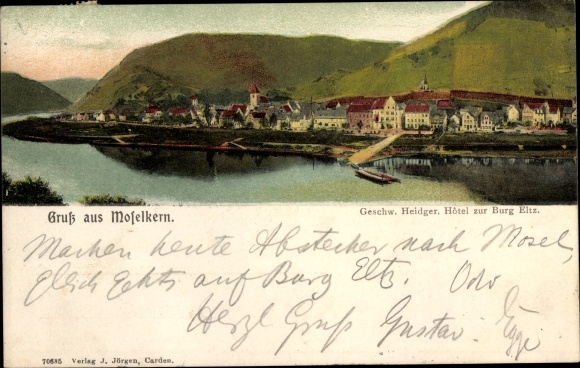 Gruß aus Moselkern.
Geschw. Heidger, Hôtel zur Burg Eltz.
Machen heute Abstecher nach Mosel,
auf Burg Eltz.
Herzl Gruß Gustav.
70635 Verlag J. Jörgen, Carden.